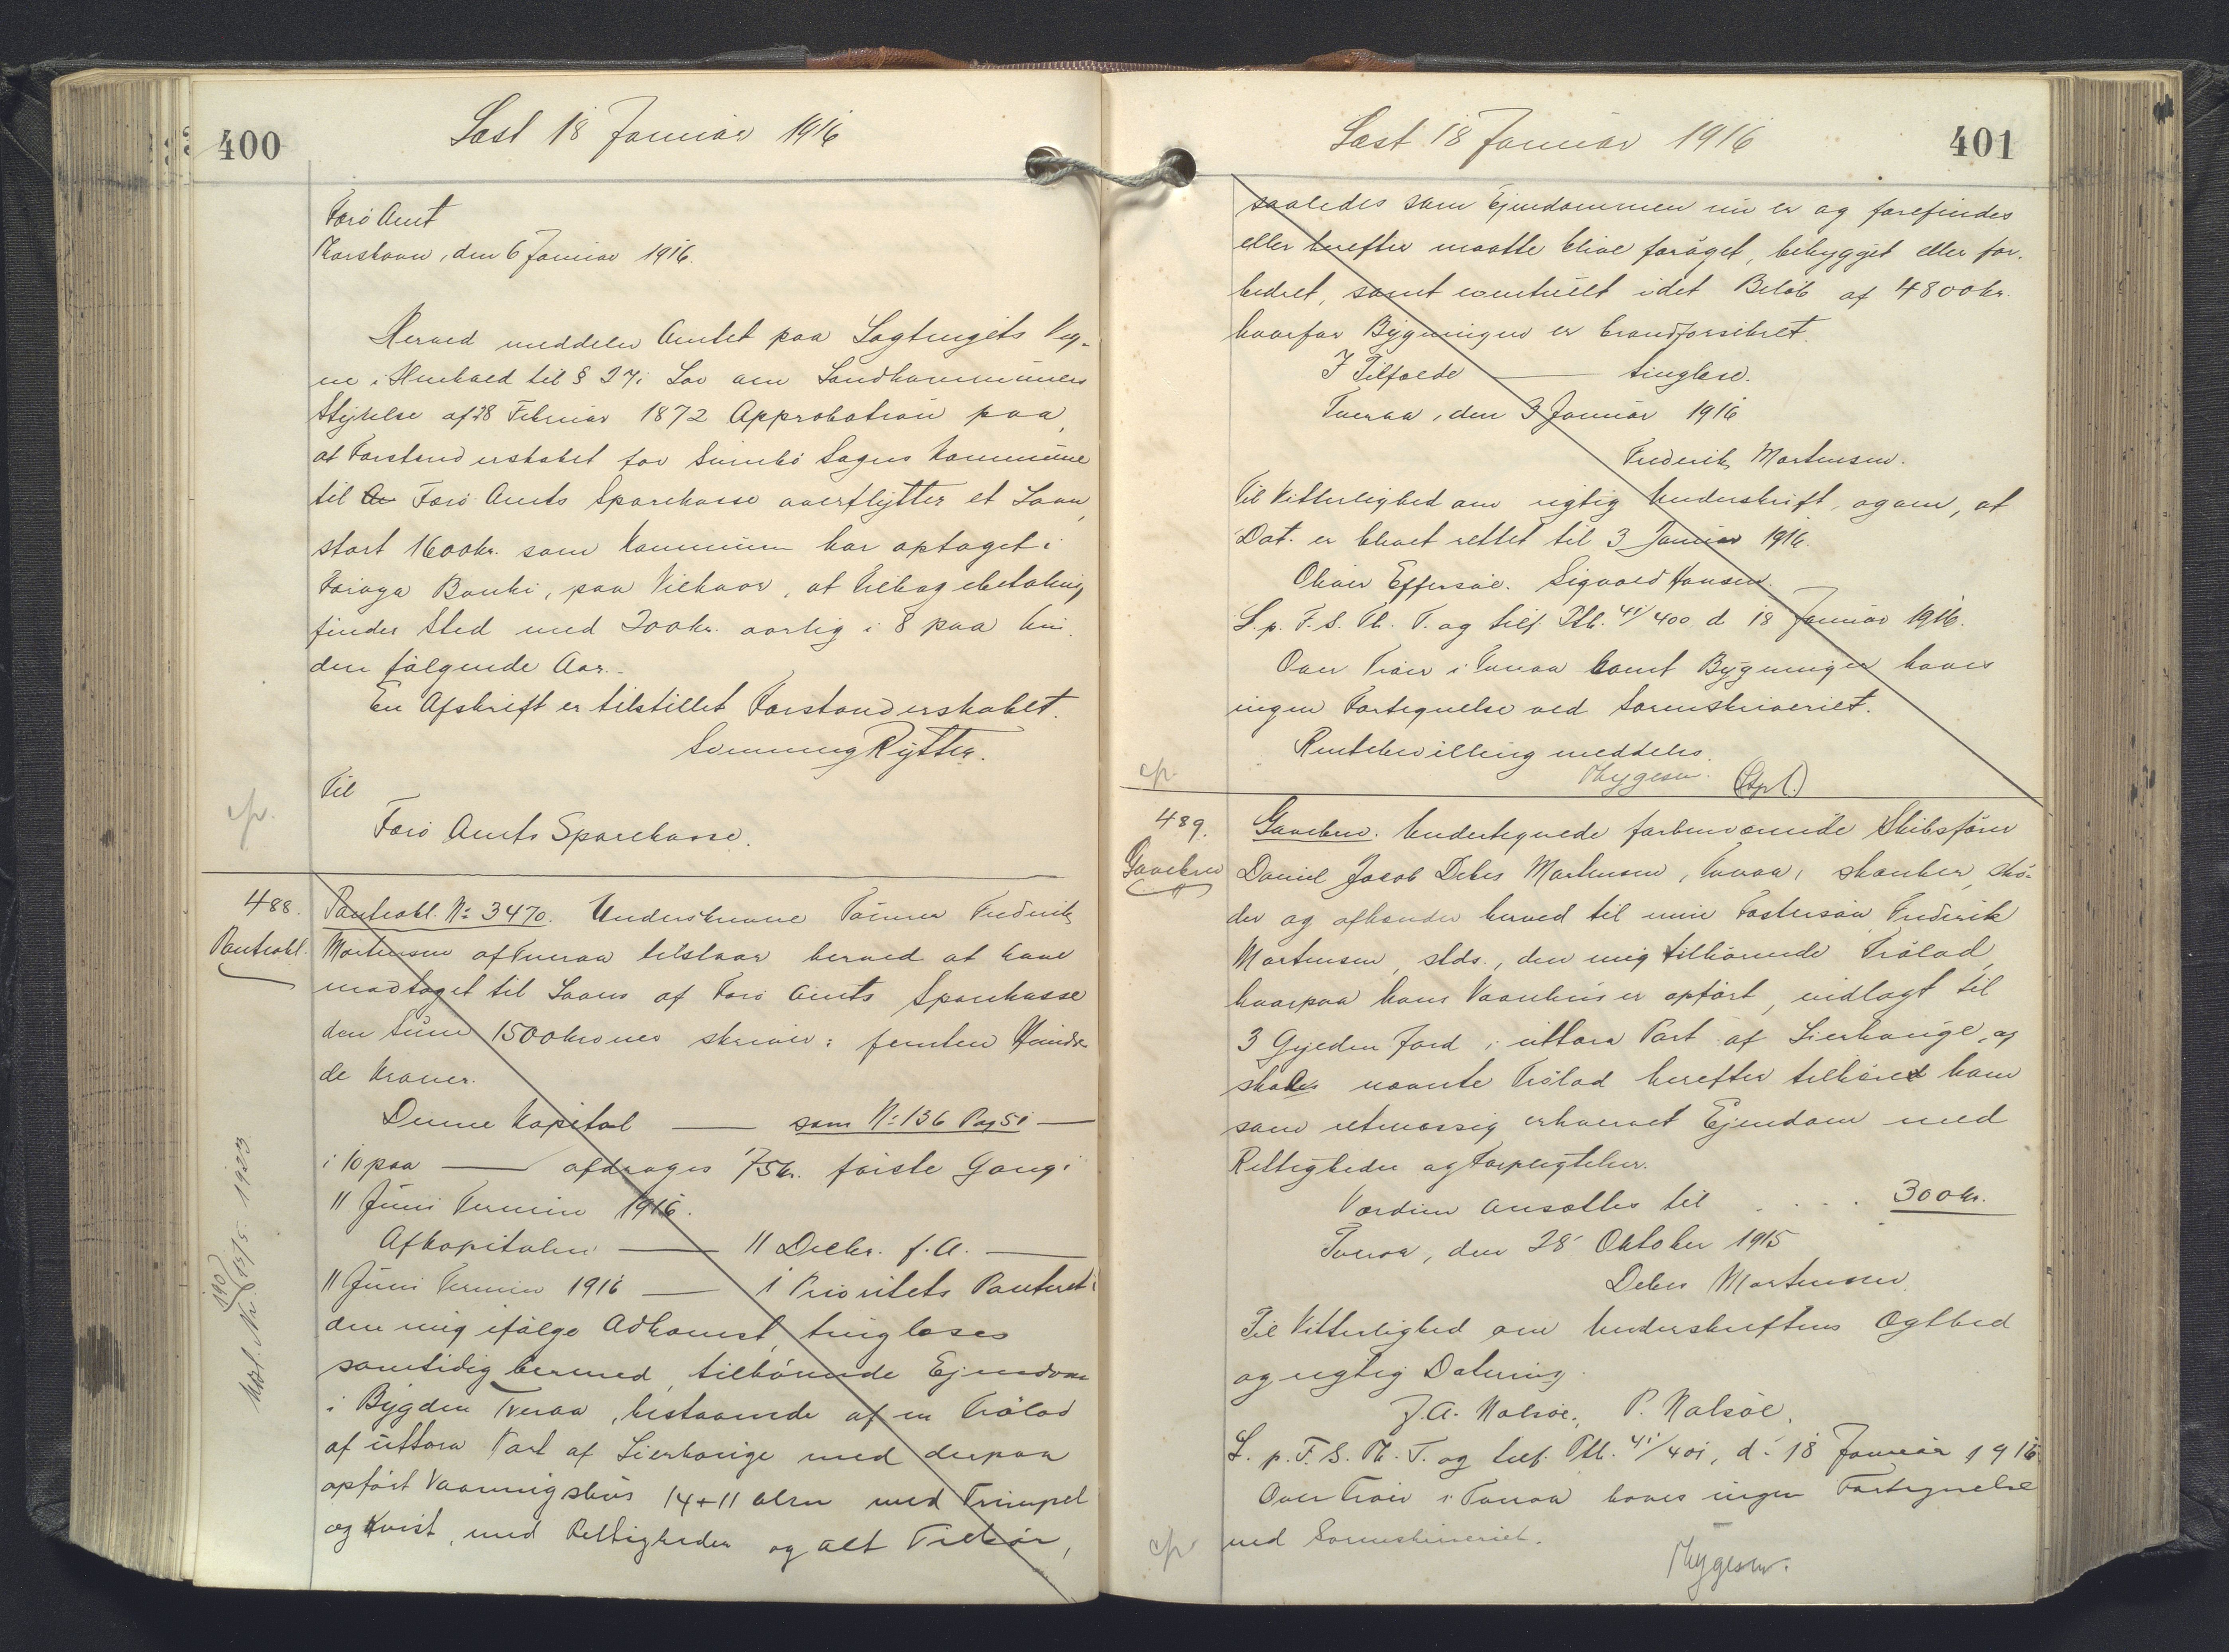 400
Læst 18 Januar 1916
Færø Amt
Thorshavn, den 6 Januar 1916.
Herved meddeler Amtet paa Lagtingets Veg-
ne i Henhold til § 27 i Lov om Landkommuners
Styrelse af 28 Februar 1872 Approbation paa,
at Forstanderskabet for Sumbø Sogns Kommune
til Færø Amts Sparekasse overflytter et Laan,
stort 1600 kr. som Kommunen har optaget i
Føroya Banki, paa Vilkaar, at Tilbagebetaling
finder Sted med 200 kr. aarlig i 8 paa hin-
den følgende Aar.
En Afskrift er tilstillet Forstanderskabet.
Rytter.
Til
Færø Amts Sparekasse.
cfr.
488.
Panteobl.
Panteobl. № 3470. Underskrevne Tømrer Frederik
Mortensen af Tveraa tilstaar herved at have
modtaget til Laans af Færø Amts Sparekasse
den Sum 1500 kroner skriver: femten Hundre
de Kroner.
Denne Kapital — som № 136 Pag 51 —
i 10 paa — afdrages 75 kr. første Gang i
11 Juni Termin 1916.
Af Kapitalen — 11 Decbr. f. A. —
11 Juni Termin 1916 — 1 Prioritets Panteret i
den mig ifølge Adkomst, tinglæses
samtidig hermed, tilhørende Ejendom
i Bygden Tveraa, bestaaende af en Trølad
af uttara Part af Lierhauge med derpaa
opført Vaaningshus 14 + 11 Alen med Trimpel
og Kvist, med Rettigheder og alt Tilhør,
Udsl. Nr. 15/5 1923
401
Læst 18 Januar 1916
saaledes som Ejendommen nu er og forefindes
eller herefter maatte blive forøget, bebygget eller for-
bedret, samt eventuelt i det Beløb af 4800 kr.
hvorfor Bygningen er brandforsikret.
I Tilfælde — tinglæse.
Tveraa, den 3 Januar 1916
Frederik Mortensen.
Til Vitterlighed om rigtig Underskrift, og om, at
Dat. er blevet rettet til 3 Januar 1916.
Oliver Effersøe. Sigvald Hansen.
L. p. F. S. Th. T. og tilf. Ptb. 41/400 d 18 Januar 1916.
Over Trøer i Tveraa samt Bygninger haves
ingen Fortegnelse ved Sorenskriveriet.
Rentebevilling meddeles.
Thygesen. (Stpl.)
cfr.
489.
Gavebrev
Gavebrev. Undertegnede forhenværende Skibsfører
Daniel Jacob Debes Mortensen, Tveraa, skænker, skø-
der og afhænder herved til min Fostersøn Frederik
Mortensen, slds., den mig tilhørende Trølad,
hvorpaa hans Vaanhus er opført, indlagt til
3 Gyeden Jord i uttara Part af Lierhauge, og
skal nævnte Trølad herefter tilhøre ham
som retmæssig erhvervet Ejendom med
Rettigheder og Forpligtelser.
Værdien ansættes til . . . . 300 kr.
Tveraa, den 28 Oktober 1915
Debes Mortensen.
Til Vitterlighed om Underskriftens Ægthed
og rigtig Datering.
J. A. Nolsøe. P. Nolsøe.
L. p. F. S. Th. T. og tilf. Ptb. 41/401, d. 18 Januar 1916.
Over Trøer i Tveraa haves ingen Fortegnelse
ved Sorenskriveriet.
Thygesen.
cfr